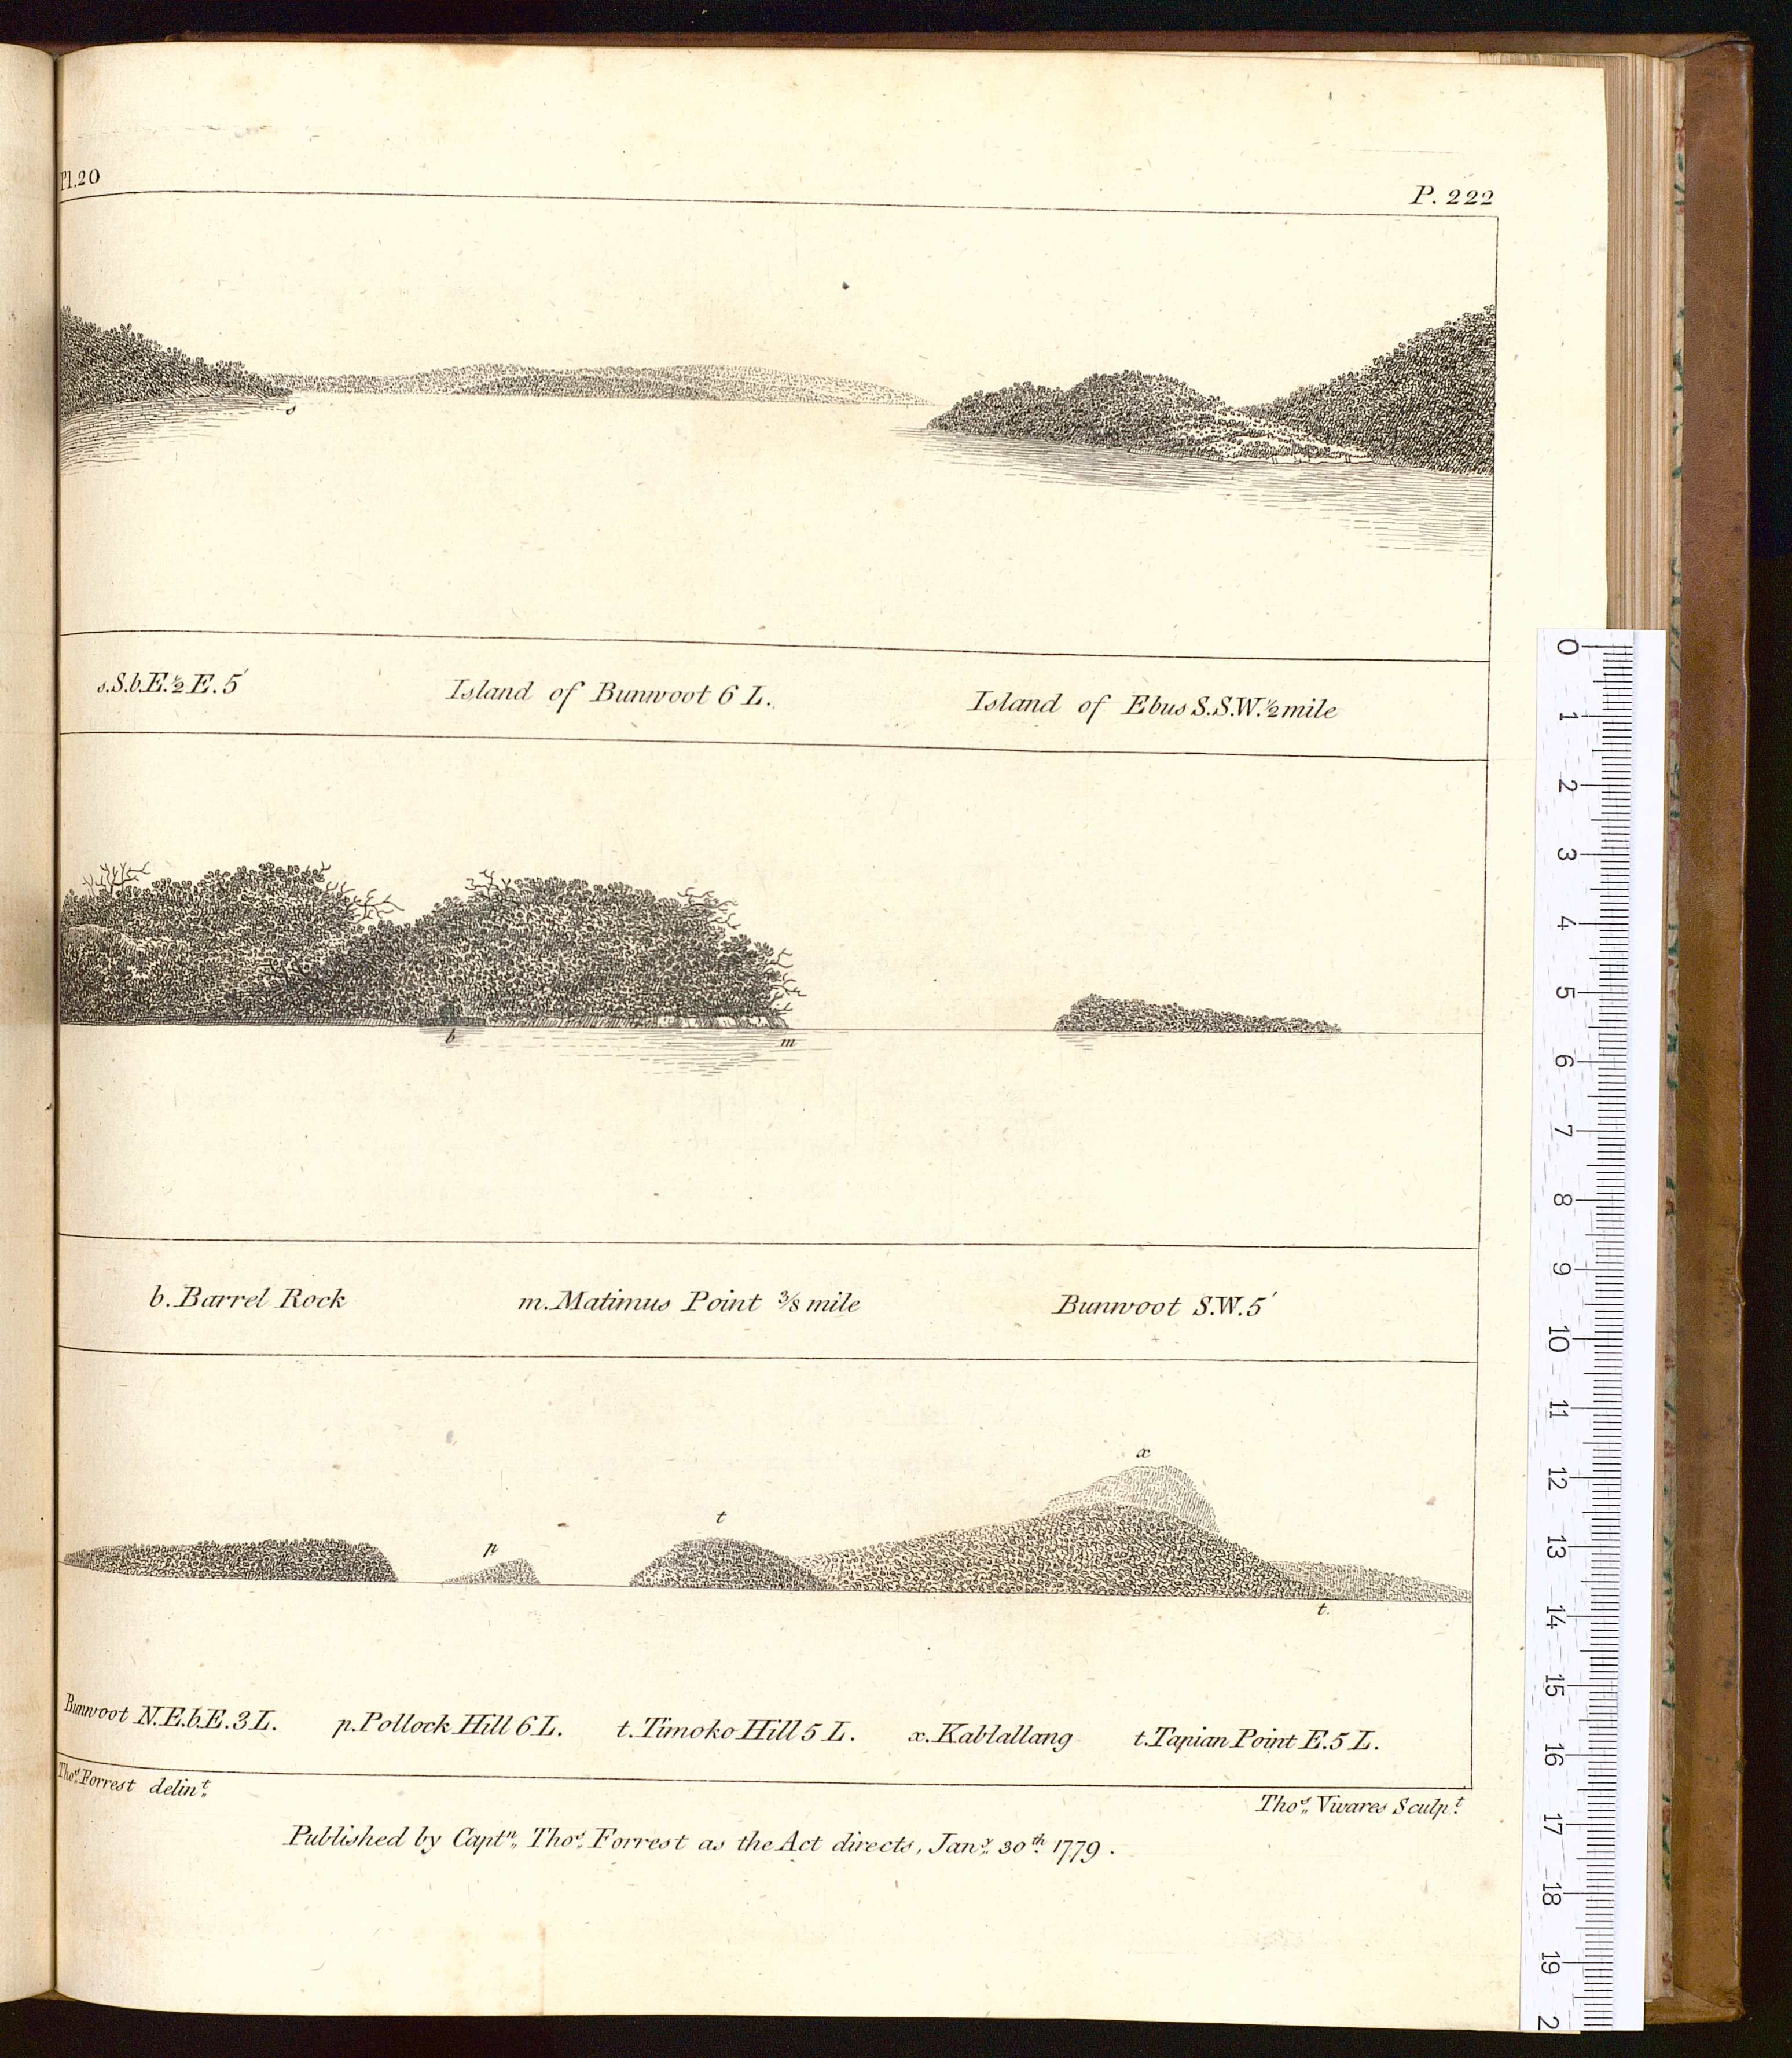 Pl.20
P. 222
s
s.S.b.E.½E.5'
Island of Bunwoot 6 L.
Island of Ebus S.S.W.½mile
b
m
b.Barrel Rock
m.Matimus Point ⅜ mile
Bunwoot S.W.5'
x
t
p
t.
Bunwoot N.E.b.E.3L.
p.Pollock Hill 6L.
t.Timoko Hill 5 L.
x.Kablallang
t.Tapian Point E.5L.
Thos. Forrest delint.
Thos. Vivares Sculpt.
Published by Captn. Thos. Forrest as the Act directs, Jany. 30th. 1779.
0
1
2
3
4
5
6
7
8
9
10
11
12
13
14
15
16
17
18
19
2